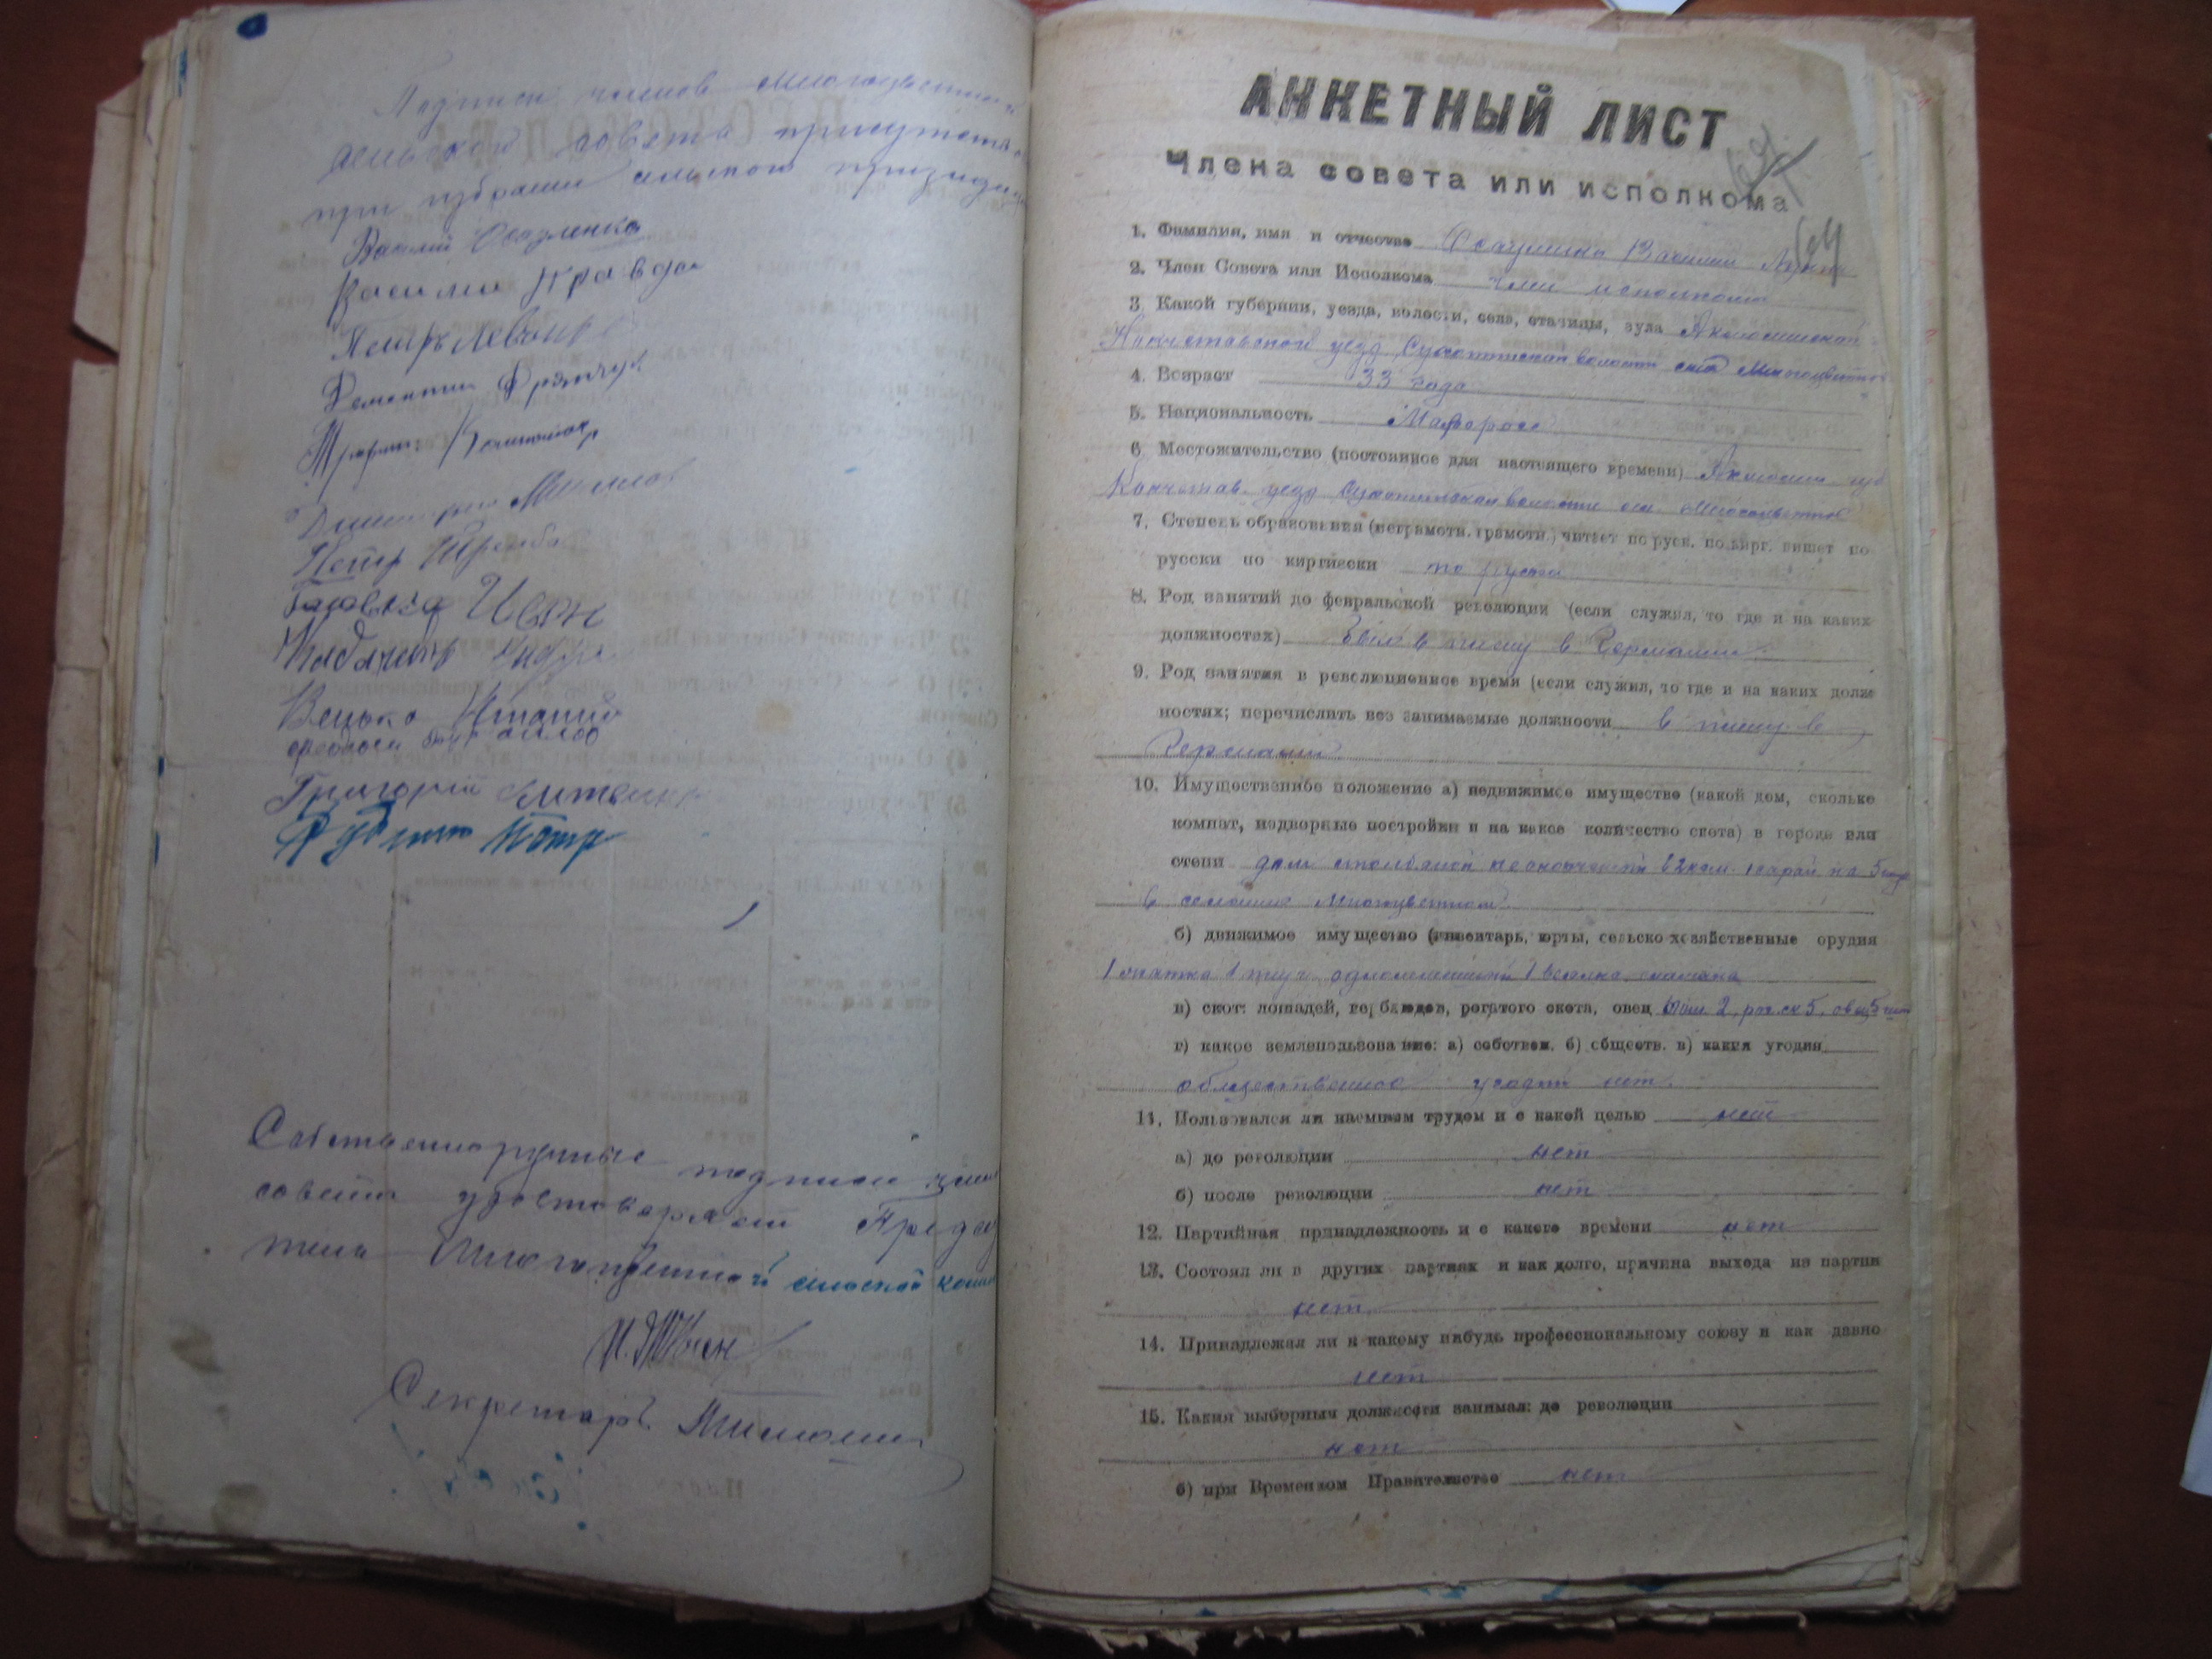 Подписи членов Многоцветн
сельского совета присутств
при избрании сельского президиум
Василий Осауленко
Василий Правда
Петръ Леванд
Дементий
Трофим
Дмитрий
Петр
Головко Иван
Кабанец
Величко Игнатий
Григорій
Рубан Петр
Собственноручные подписи член
совета удостоверяет Председ
теля Многоцветной сельской комис
Секретарь
АНКЕТНЫЙ ЛИСТ
Члена совета или исполкома
64
1. Фамилия, имя и отчество Осауленко Василий
2. Член Совета или Исполкома член исполкома
3. Какой губернии, уезда, волости, села, станицы, аула Акмолинской
Кокчетавской уезд Сухотинская волости село Многоцветное
4. Возраст 33 года
5. Национальность Малоросс
6. Местожительство (постоянное для настоящего времени) Акмолин. губ
Кокчетав. уезд Сухотинская волости сел. Многоцветное
7. Степень образования (неграмотн. грамотн.) читает по руск. по кирг. пишет по
русски по киргизски по русски
8. Род занятий до февральской революции (если служил, то где и на каких
должностях) был в плену в Германии
9. Род занятия в революционное время (если служил, то где и на каких долж
ностях; перечислить все занимаемые должности в плену в
Германии
10. Имущественное положение а) недвижимое имущество (какой дом, сколько
комнат, надворные постройки и на какое количество скота) в городе или
степи дом неоконченый в 2 ком. сарай на 5
в селении Многоцветном
б) движимое имущество (инвентарь, юрты, сельско-хозяйственные орудия
1 плуг 1
в) скот: лошадей, верблюдов, рогатого скота, овец лош 2, рог. ск 5, овц 5 шт
г) какое землепользование: а) собствен. б) обществ. в) какия угодия
общественное угодий нет.
11. Пользовался ли наемным трудом и с какой целью нет
а) до революции нет
б) после революции нет
12. Партийная принадлежность и с какого времени нет
13. Состоял ли в других партиях и как долго, причина выхода из партии
нет.
14. Принадлежал ли к какому нибудь профессиональному союзу и как давно
нет
15. Какия выборныя должности занимал: до революции
нет
б) при Временном Правителстве нет